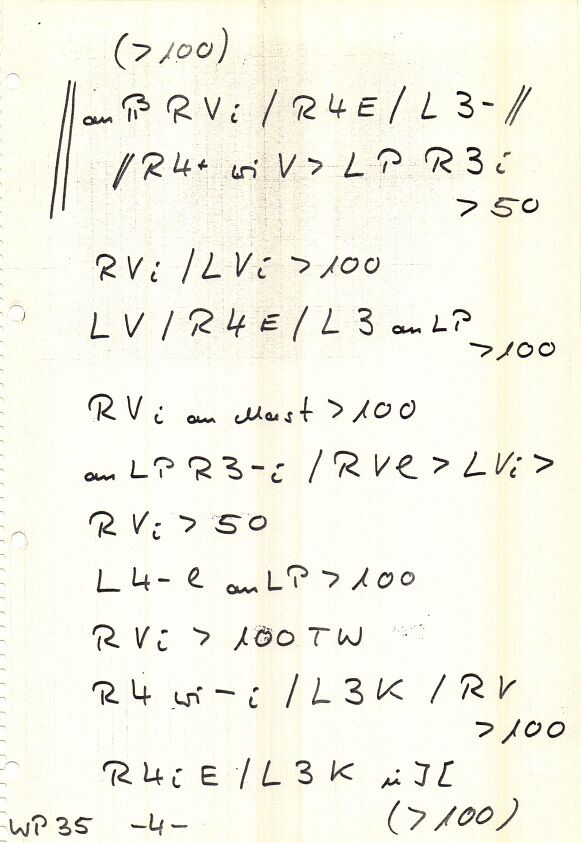 (>100)
an RVi / R4E / L3- //
// R4+ wi V> LP R3i
>50
RVi / LVi >100
LV / R4E / L3 an LP
>100
RVi an Mast >100
an LP R3-i / RVl > LVi >
RVi > 50
L4-l an LP >100
RVi > 100 TW
R4 wi-i / L3K / RV
>100
R4iE / L3K in ][
(>100)
WP35 -4-